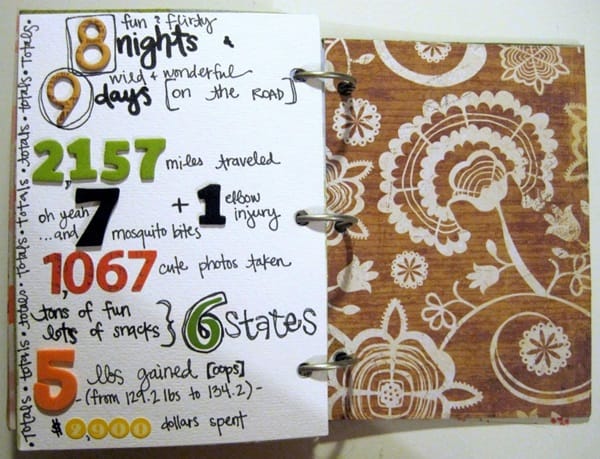 totals • totals • totals • totals • totals • totals • totals • totals • totals •
8 fun & flirty nights &
9 wild + wonderful days [on the ROAD]
2,157 miles traveled
oh yeah ...and 7 mosquito bites + 1 elbow injury
1,067 cute photos taken
tons of fun
lots of snacks } 6 states
5 lbs gained [oops]
-(from 129.2 lbs to 134.2)-
$2,900 dollars spent